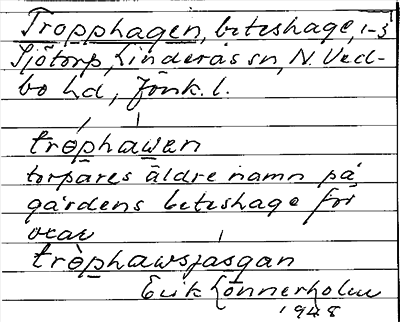 Tropphagen, beteshage, 1-3
Sjötorp, Linderås sn, N. Ved-
bo hd, Jönk. l.
trøphawen
torpares äldre namn på
gårdens beteshage för
oxar
trøphawsjasgan
Erik Lönnerholm
1948